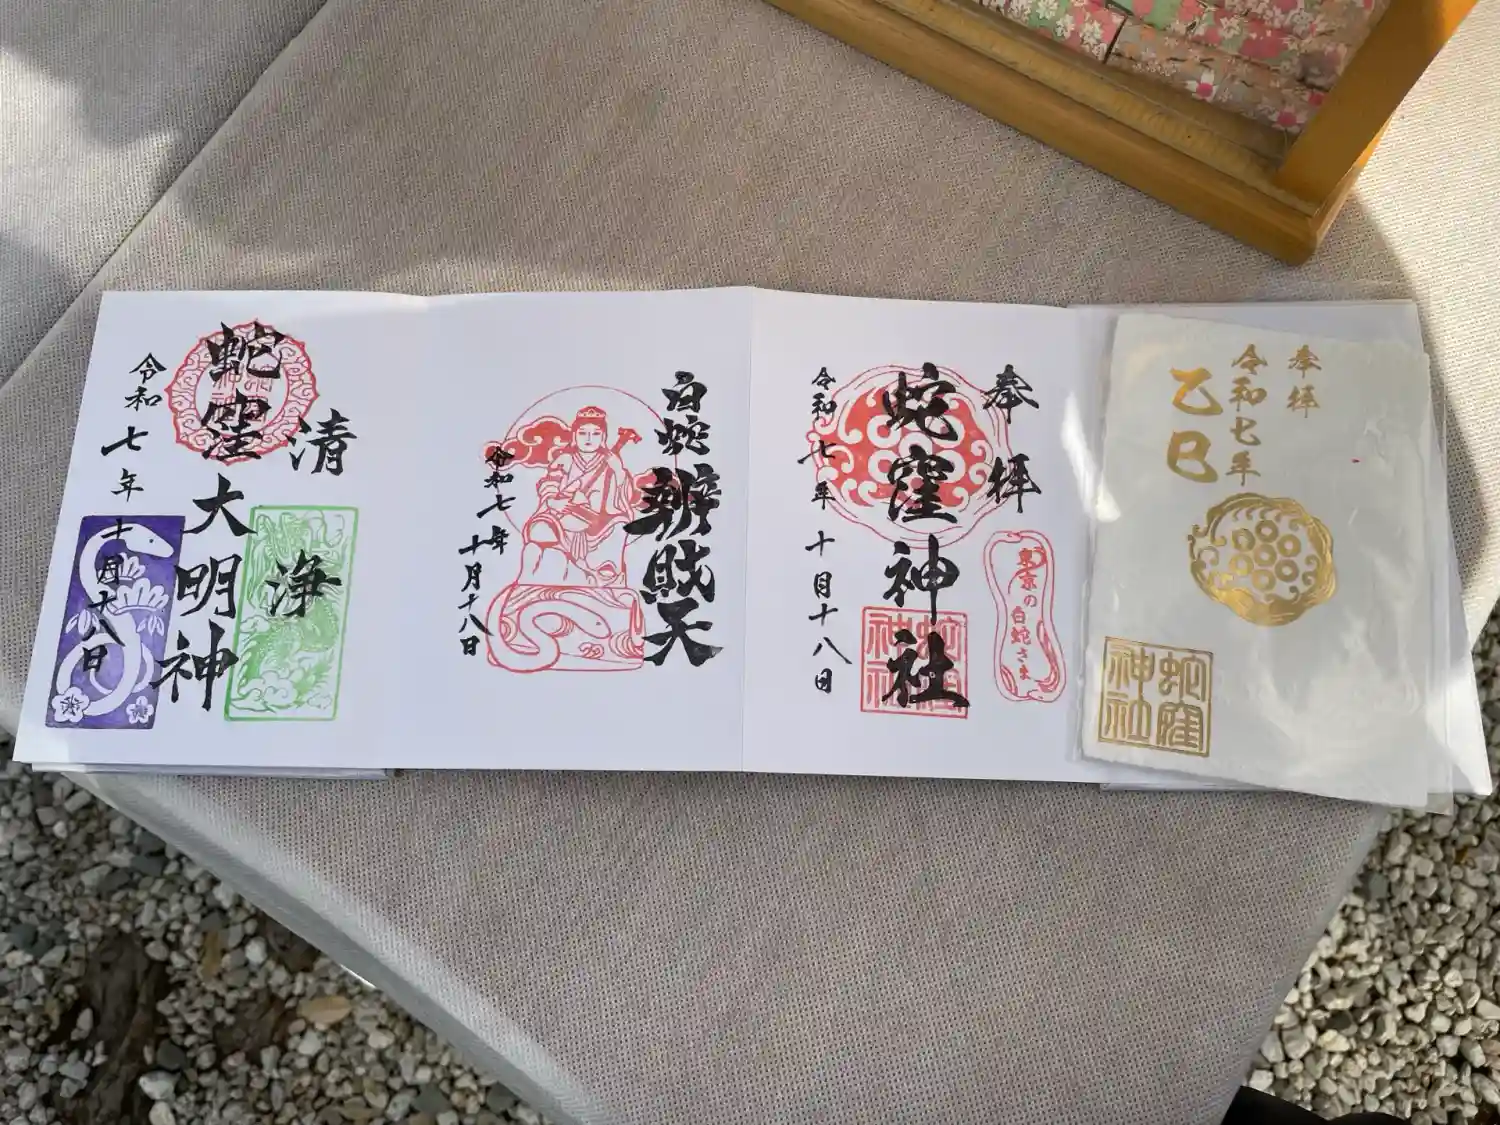 奉拝
令和七年
乙巳
蛇窪神社
奉拝
蛇窪神社
東京の白蛇さま
令和七年十月十八日
白蛇辨財天
令和七年十月十八日
清
浄
蛇窪大明神
令和七年十月十八日